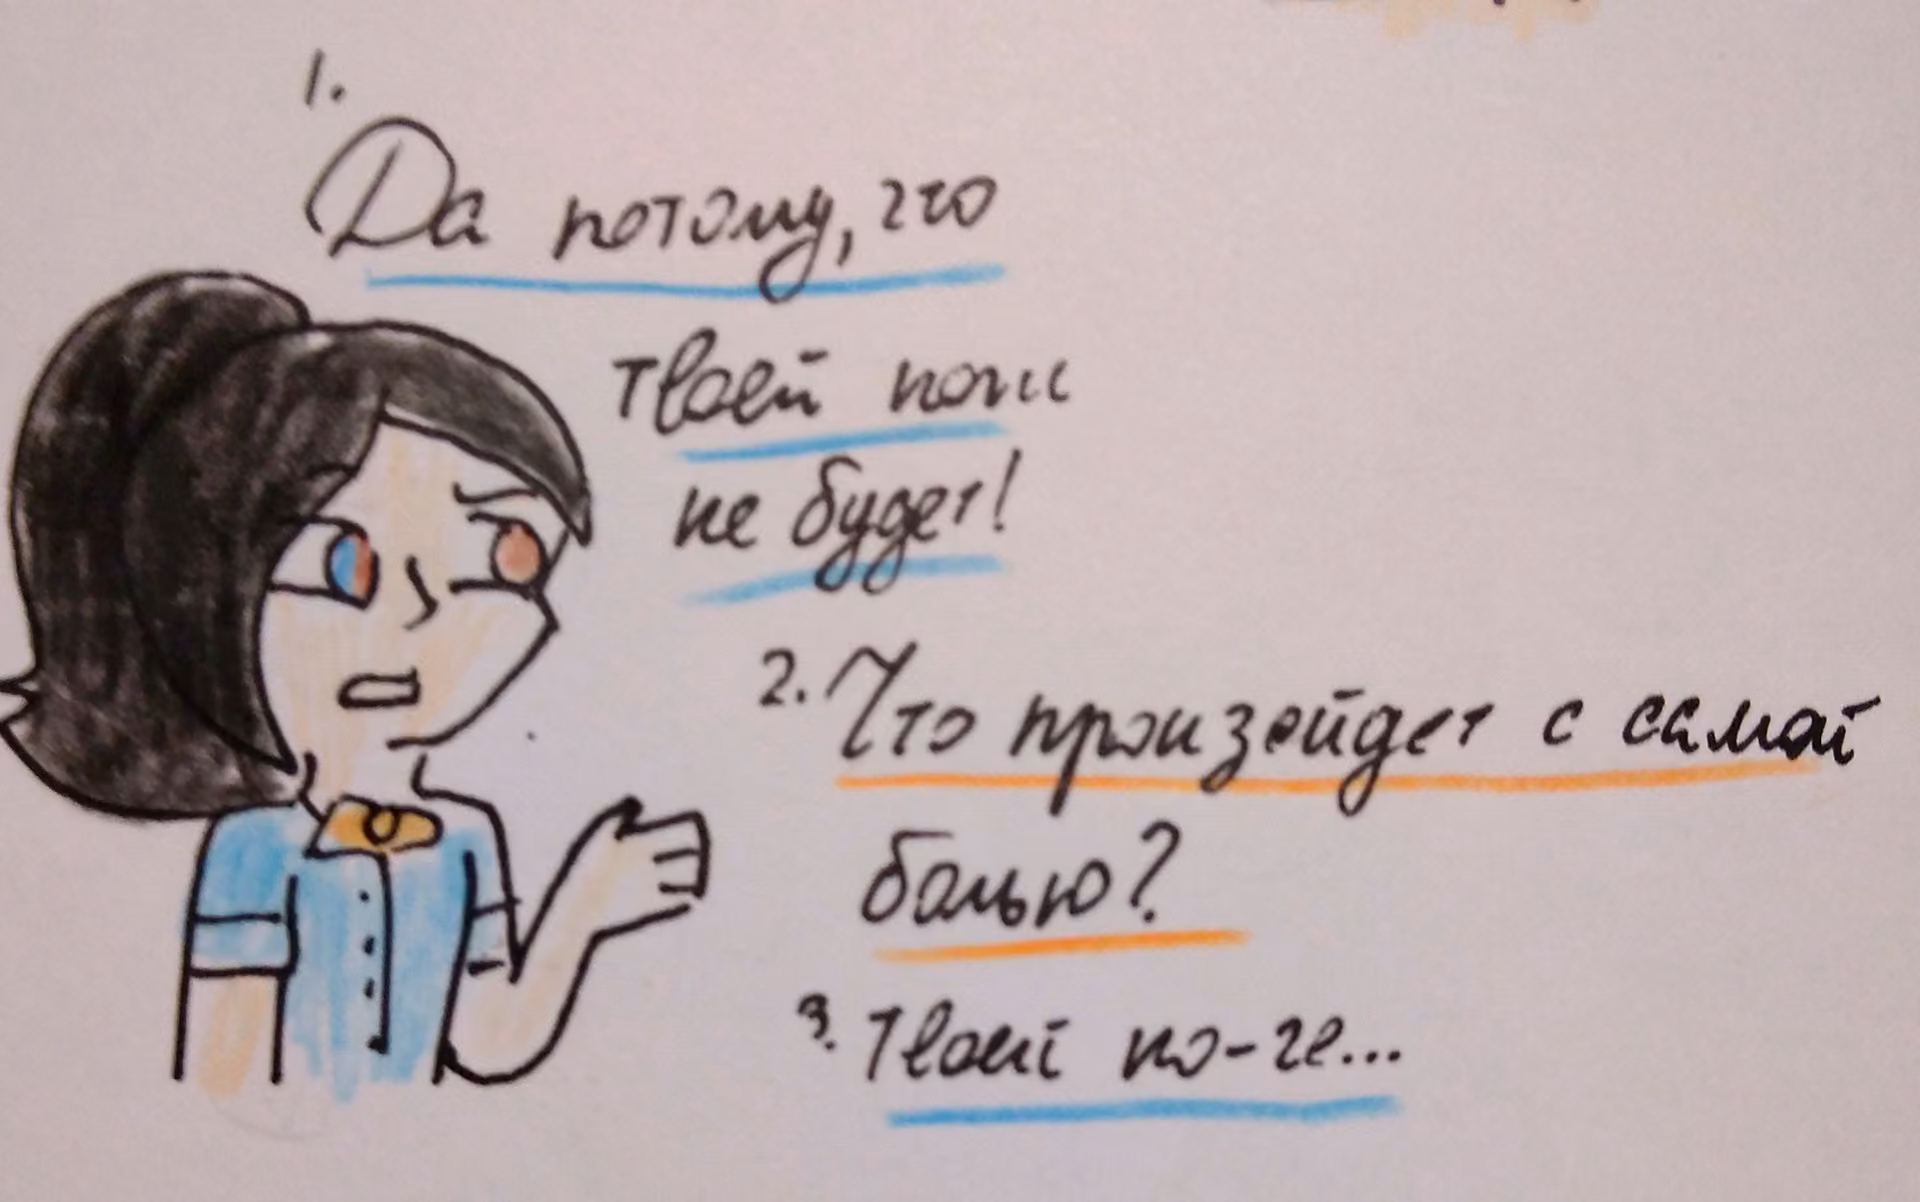 1.
Да потому, что
твоей ноги
не будет!
2. Что произойдет с самой
болью?
3. Твоей но-ге...